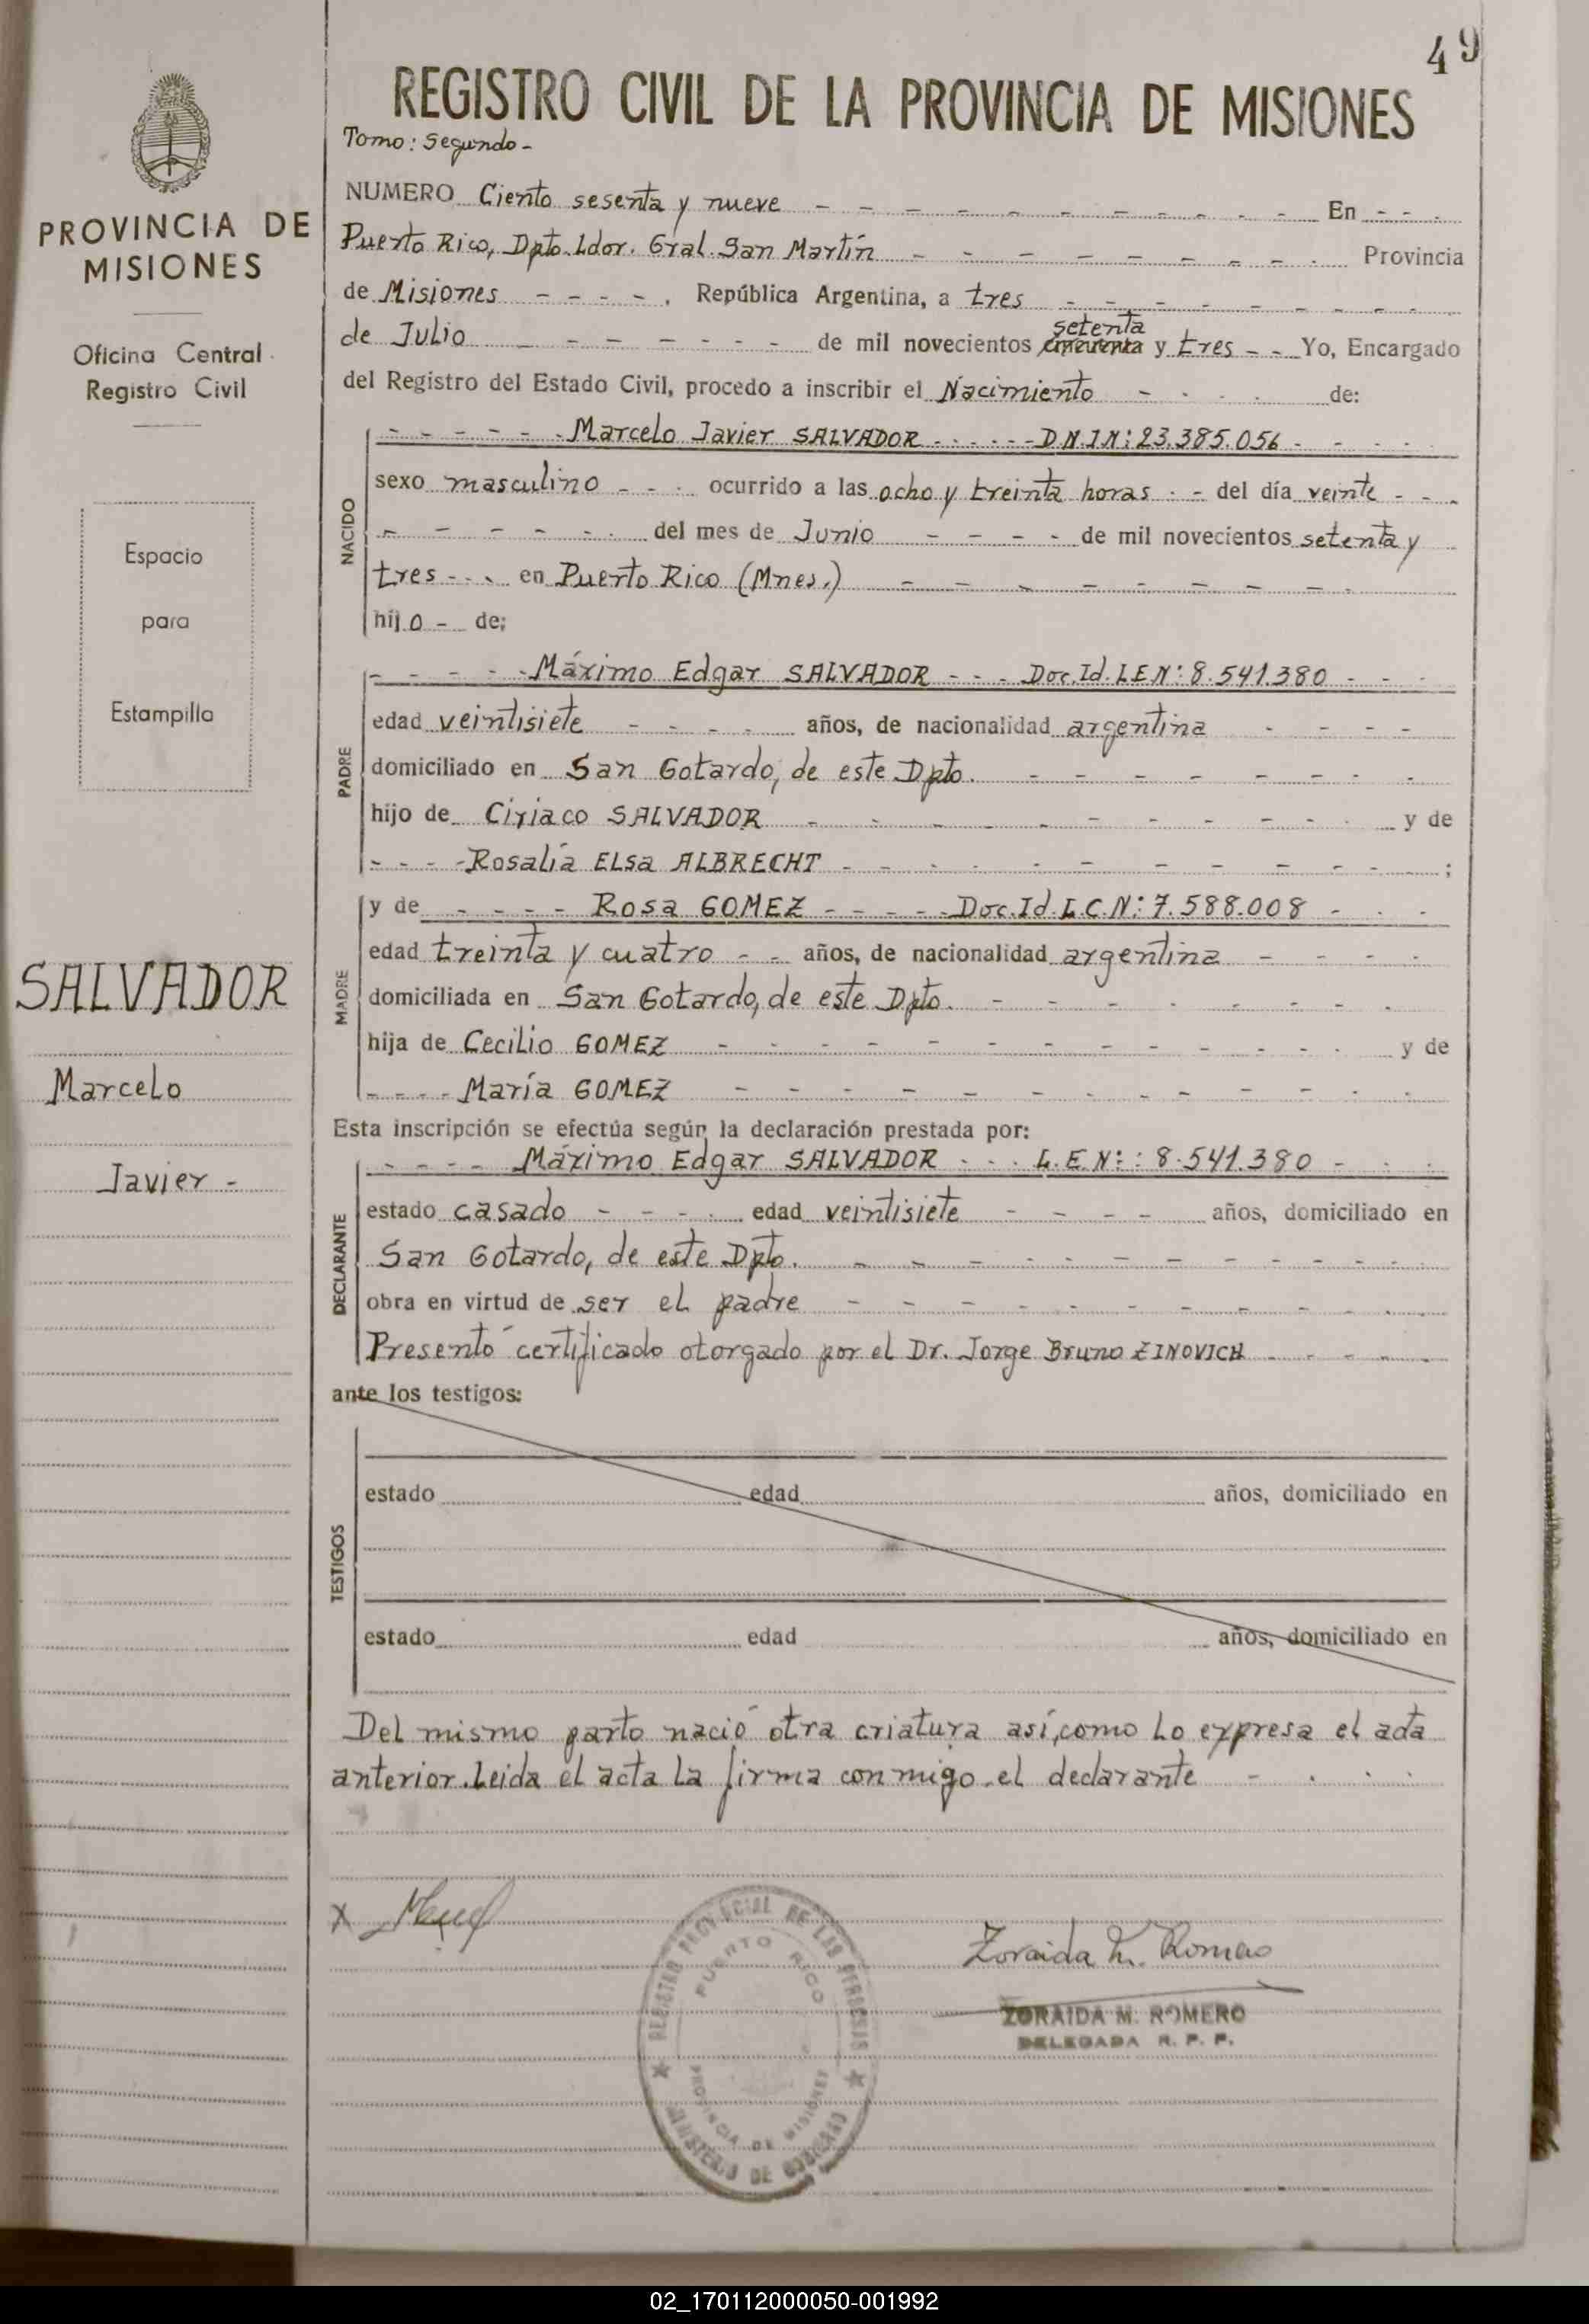 49
REGISTRO CIVIL DE LA PROVINCIA DE MISIONES
Tomo: Segundo -
NUMERO Ciento sesenta y nueve - - - - - - - - - - En - - -
Puerto Rico, Dpto. Ldor. Gral. San Martín - - - - - - - - Provincia
de Misiones - - - - . República Argentina, a tres - - - - - - - -
setenta
de Julio - - - - - - de mil novecientos cincuenta y tres - - Yo, Encargado
del Registro del Estado Civil, procedo a inscribir el Nacimiento - - - - de:
PROVINCIA DE
MISIONES
Oficina Central
Registro Civil
Espacio
para
Estampilla
SALVADOR
Marcelo
Javier -
NACIDO
- - - - - - Marcelo Javier SALVADOR - - - - - - D.N.I.N: 23.385.056 - - - -
sexo masculino - - - ocurrido a las ocho y treinta horas - - del día veinte - - -
- - - - - - del mes de Junio - - - - de mil novecientos setenta y
tres - - - en Puerto Rico (Mnes.) - - - - - - - - -
hijo - de;
PADRE
- - - - - Máximo Edgar SALVADOR - - - Doc. Id. L.E.N: 8.541.380 - - -
edad veintisiete - - - - años, de nacionalidad argentina - - - -
domiciliado en San Gotardo, de este Dpto. - - - - - - - -
hijo de Ciriaco SALVADOR - - - - - - - - - - y de
- - - - Rosalía ELSa ALBRECHT - - - - - - - - - - ;
MADRE
y de - - - - Rosa GOMEZ - - - - - Doc. Id. L.C.N: 7.588.008 - - -
edad treinta y cuatro - - años, de nacionalidad argentina - - - -
domiciliada en San Gotardo, de este Dpto. - - - - - - - -
hija de Cecilio GOMEZ - - - - - - - - - - - y de
- - - - María GOMEZ - - - - - - - - - - -
Esta inscripción se efectúa según la declaración prestada por:
DECLARANTE
- - - - Máximo Edgar SALVADOR - - - L.E.N: : 8.541.380 - - -
estado casado - - - - edad veintisiete - - - - años, domiciliado en
San Gotardo, de este Dpto. - - - - - - - - - - -
obra en virtud de ser el padre - - - - - - - - - -
Presentó certificado otorgado por el Dr. Jorge Bruno ZINOVICH - - - -
ante los testigos:
TESTIGOS
estado edad años, domiciliado en
estado edad años, domiciliado en
Del mismo parto nació otra criatura así, como lo expresa el acta
anterior. Leida el acta la firma conmigo el declarante - - - -
X
Zoraida M. Romero
ZORAIDA M. ROMERO
DELEGADA R. P. P.
REGISTRO PROVINCIAL DE LAS PERSONAS
PUERTO RICO
PROVINCIA DE MISIONES
MINISTERIO DE GOBIERNO
02_170112000050-001992